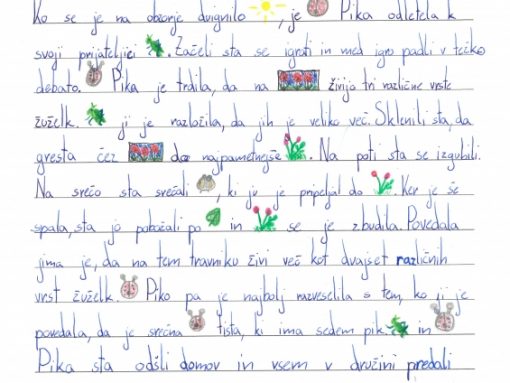 Ko se je na obzorje dvignilo , je Pika odletela k
svoji prijateljici . Začeli sta se igrati in med igro padli v težko
debato. Pika je trdila, da na živijo tri različne vrste
žuželk. ji je razložila, da jih je veliko več. Sklenili sta, da
gresta čez do najpametnejše . Na poti sta se izgubili.
Na srečo sta srečali , ki ju je pripeljal do . Ker je še
spala, sta jo pobožali po in se je zbudila. Povedala
jima je, da na tem travniku živi več kot dvajset različnih
vrst žuželk. Piko pa je najbolj razveselila s tem, ko ji je
povedala, da je srečna tista, ki ima sedem pik. in
Pika sta odšli domov in vsem v družini predali